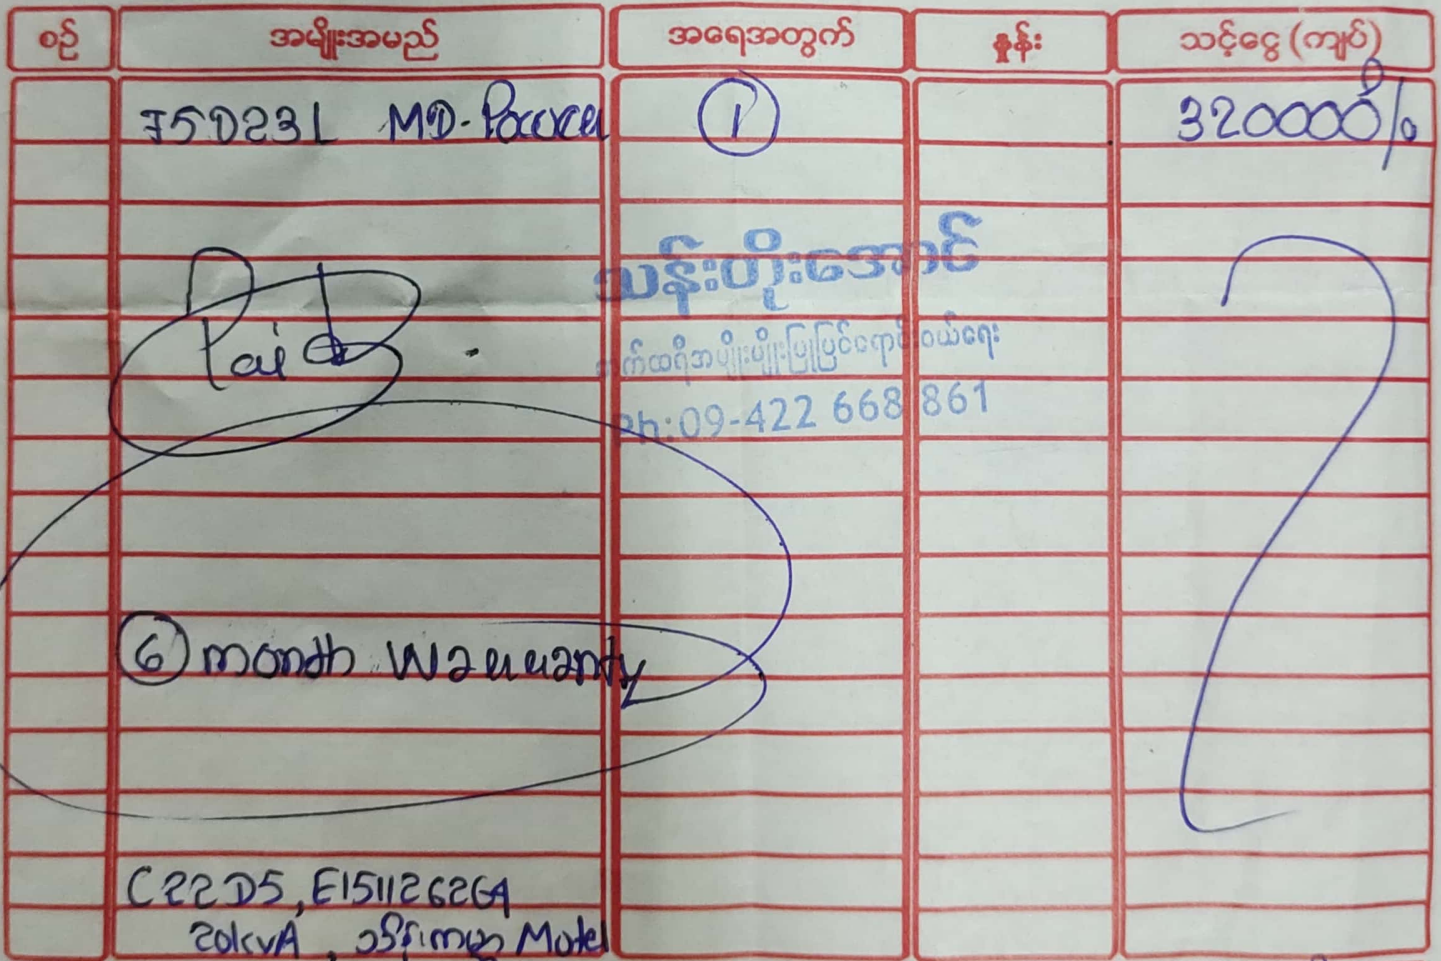 စဉ် အမျိုးအမည် အရေအတွက် နှုန်း သင့်ငွေ (ကျပ်)
75D23L MD-Power 1 320000/
သန်းတိုးအောင်
ဘက်ထရီအမျိုးမျိုးပြုပြင်ရောင်းဝယ်ရေး
Paid
Ph:09-422 668 861
6 month Warranty
C22D5, E15112626A
20kvA, Motel